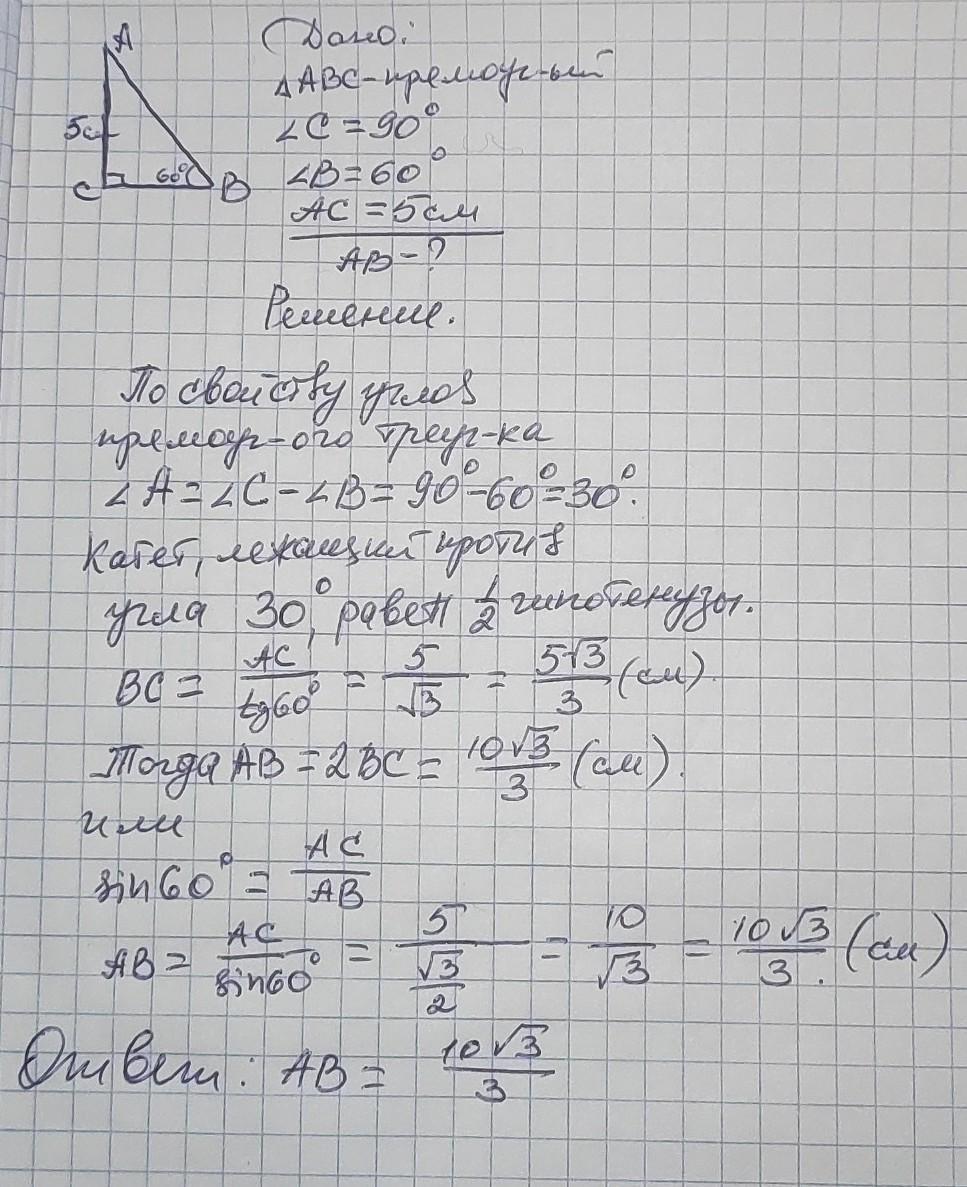 A
5см
C
60°
B
Дано:
△ABC-прямоуг-ый
∠C = 90°
∠B = 60°
AC = 5см
AB - ?
Решение.
По свойству углов
прямоуг-ого треуг-ка
∠A = ∠C - ∠B = 90° - 60° = 30°.
Катет, лежащий против
угла 30°, равен 1/2 гипотенузы.
BC = AC/tg60° = 5/√3 = 5√3/3 (см).
Тогда AB = 2BC = 10√3/3 (см).
или
sin60° = AC/AB
AB = AC/sin60° = 5/(√3/2) = 10/√3 = 10√3/3. (см)
Ответ: AB = 10√3/3